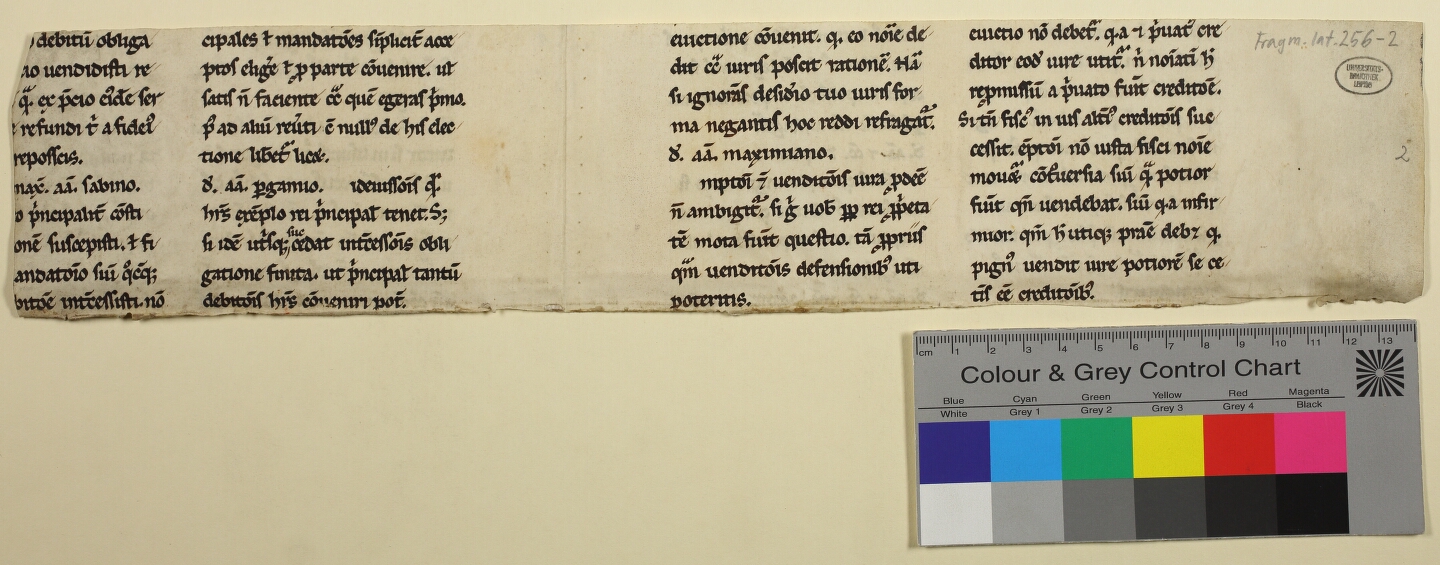 debitū obliga
uendidisti re
q̄. ex p̄cio eidē ser
refundi ł a fideł
reposcis.
max̄. aā. sabino.
o p̄ncipalit̄ cōsti
onē suscepisti. ł fi
andatoıo suū q̊cēq;
bitōe int̄cessisti. nō
cipales ł mandatōēs sīplicit̄ acce
ptos elig̃e ł ꝓ parte cōuenire. uł
satis n̄ faciente eē quē egeras p̄mo.
p̄ ad aliū reūti ē null᷒ de his elec
tione libet̄ licē.
d̄. aā. ꝑgamio. ideiussōis q̄ꝫ
his exēplo rei p̄ncipał tenet. S;
si idē ut̄sq; suc cedat int̄cessōis obli
gatione finita. ut p̄ncipał tantū
debitōis hr̄s cōueniri pot̄.
euictione cōuenit. q. eo noīe de
dit eē iuris poscit rationē. Nā
si ignorās desidio tuo iuris for
ma negantis hoc reddi refragat̄.
d̄. aā. maximiano.
mptōi ⁊ uenditōis iura ꝓdeē
n̄ ambigit̄. si g̊ uob̄ ꝓp rei ꝓpeta
tē mota fuit questio. tā ꝓpriis
qm̄ uenditōis defensionib᷒ uti
poteritis.
euictio nō debet̄. q. a ⁊ p̄uat᷒ cre
ditor eod̄ iure utit̄. n̄ noīati h̄
repmissū a p̄uato fuit creditōē.
Si tn̄ fisc᷒ in ius alt᷒i᷒ creditōis suc
cessit. ēptōi nō iusta fisci noīe
mouet̄ cōt̄uersia siū q̄ potior
fuit qn̄ uendebat. siū q. a infir
mior. qm̄ h̄ utiq; prāē debꝫ q.
pign᷒ uendit iure potiorē se ce
t̄is eē creditōib᷒.
Fragm. lat. 256-2
UNIVERSITÄTS-
BIBLIOTHEK
LEIPZIG
2
cm 1 2 3 4 5 6 7 8 9 10 11 12 13
Colour & Grey Control Chart
Blue Cyan Green Yellow Red Magenta
White Grey 1 Grey 2 Grey 3 Grey 4 Black